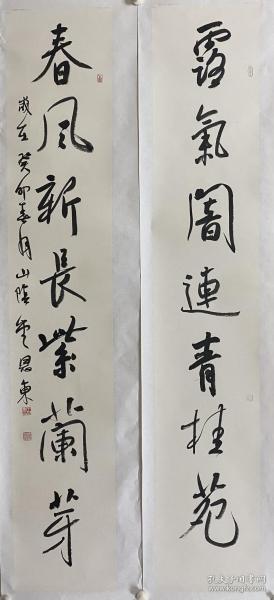 露氣闇連青桂苑
春風新長紫蘭芽
歲在癸卯春月山陰
孔夫子旧书网